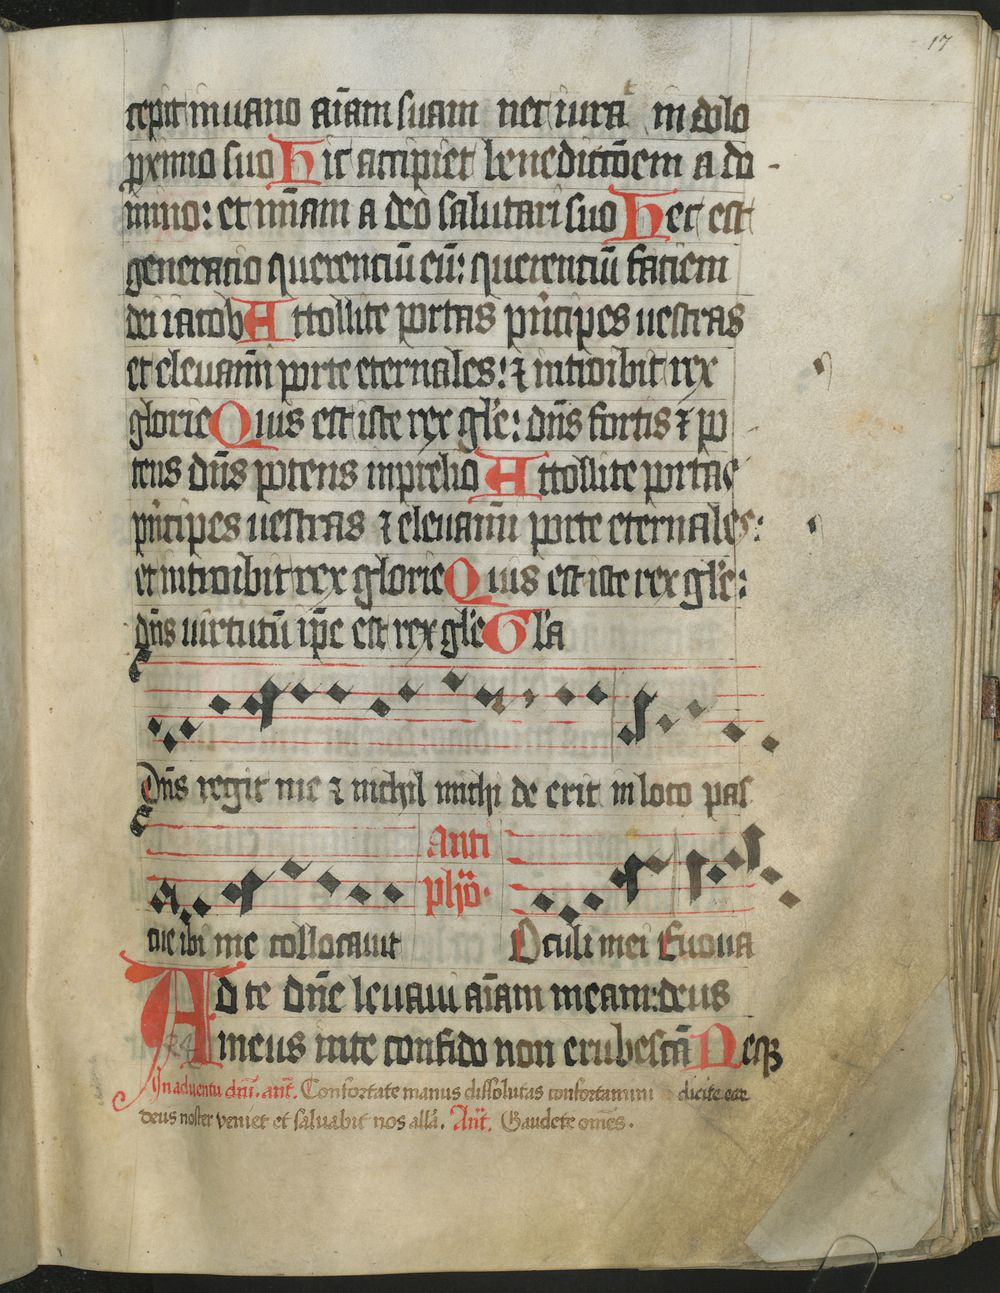 17
cepit in uano aīam suam nec iura in dolo
proximo suo Hic accipiet benedictōem a do
mino: et mīam a deo salutari suo Hec est
generatio querentiū eū: querentiū faciem
dei iacob Attollite portas principes uestras
et eleuamī porte eternales: ⁊ introibit rex
glorie Quis est iste rex glīe: dn̄s fortis ⁊ po
tens dn̄s potens in prelio Attollite portas
principes uestras ⁊ eleuamī porte eternales:
et introibit rex glorie Quis est iste rex glīe:
dn̄s uirtutū ip̄e est rex glīe Gl'a
Dn̄s regit me ⁊ nichil michi de erit in loco pas
cue ibi me collocauit
anti
phō.
Oculi mei Euoua
Ad te dn̄e leuaui aīam meam: deus
meus in te confido non erubescā Neqꝫ
84
In aduentu dn̄i. ant̄. Confortate manus dissolutas confortamini dicite ecce
deus noster veniet et saluabit nos all̄a. An̄t. Gaudete om̄es.